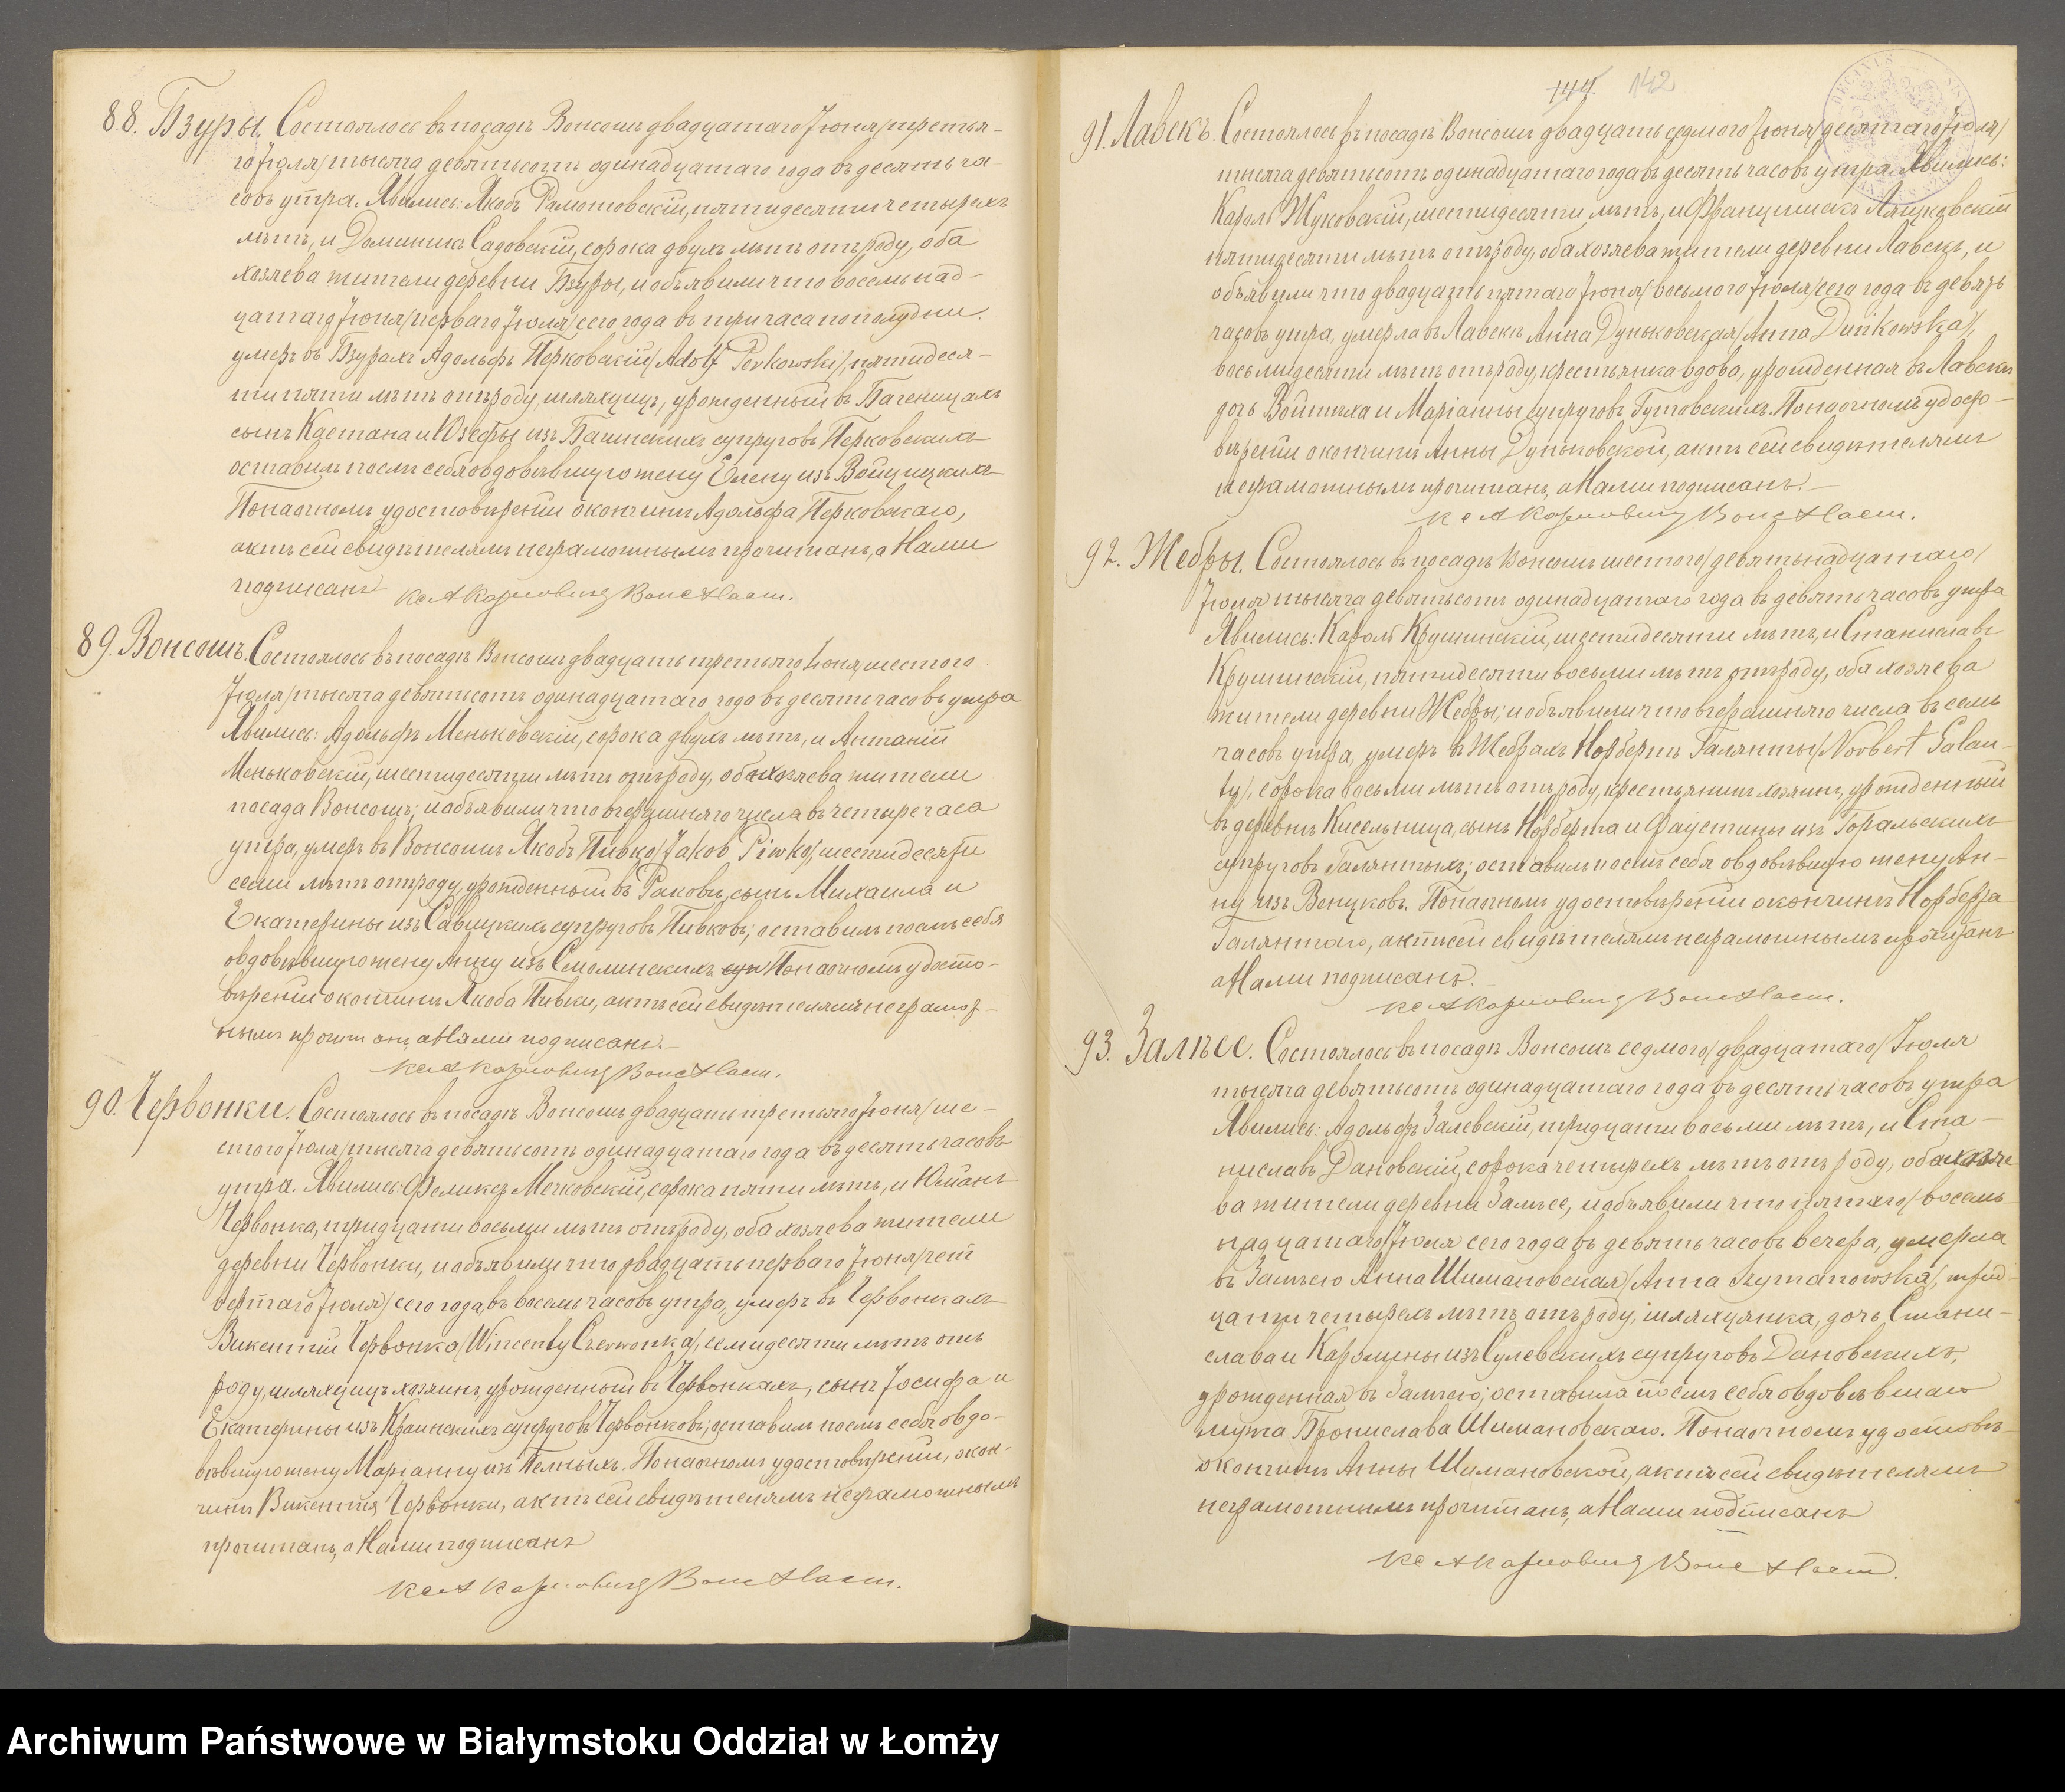 88. Бзуры. Состоялось въ посадѣ Вонсошъ двадцатаго Іюня /третья-
го Іюля/ тысяча девятьсотъ одинадцатаго года въ десять ча-
совъ утра. Явились: Якобъ Рамотовскій, пятидесяти четырехъ
лѣтъ, и Доминикъ Садовскій, сорока двухъ лѣтъ отъ роду, оба
хозяева жители деревни Бзуры, и объявили что восемьнад-
цатаго Іюня /перваго Іюля/ сего года въ три часа пополудни,
умеръ въ Бзурахъ Адольфъ Перковскій /Adolf Perkowski/, пятидеся-
ти пяти лѣтъ отъ роду, шляхцицъ, урожденный въ Баченицахъ
сынъ Каетана и Юзефы изъ супруговъ Перковскихъ
оставилъ послѣ себя овдовѣвшую жену Елену изъ Войцицкихъ
По наочномъ удостовѣреніи о кончинѣ Адольфа Перковскаго,
актъ сей свидѣтелямъ неграмотнымъ прочитанъ, а Нами
подписанъ
89. Вонсошъ. Состоялось въ посадѣ Вонсошъ двадцать третьяго Іюня /шестого
Іюля/ тысяча девятьсотъ одинадцатаго года въ десять часовъ утра
Явились: Адольфъ Меньковскій, сорока двухъ лѣтъ, и Антоній
Меньковскій, шестидесяти лѣтъ отъ роду, оба хозяева жители
посада Вонсошъ; и объявили что вчерашняго числа въ четыре часа
утра, умеръ въ Вонсошѣ Якобъ Пивко /Jakob Piwko/, шестидесяти
семи лѣтъ отъ роду, урожденный въ Раковѣ, сынъ Михаила и
Екатерины изъ Савицкихъ супруговъ Пивковъ; оставилъ послѣ себя
овдовѣвшую жену Анну изъ Смолинскихъ По наочномъ удосто-
вѣреніи о кончинѣ Якоба Пивки, актъ сей свидѣтелямъ неграмот-
нымъ прочитанъ, а Нами подписанъ.
90. Червонки. Состоялось въ посадѣ Вонсошъ двадцать третьяго Іюня /ше-
стого Іюля/ тысяча девятьсотъ одинадцатаго года въ десять часовъ
утра. Явились: Феликсъ Мечковскій, сорока пяти лѣтъ, и Юліанъ
Червонка, тридцати восьми лѣтъ отъ роду, оба хозяева жители
деревни Червонки, и объявили что двадцать перваго Іюня /чет
вертаго Іюля/ сего года, въ восемь часовъ утра, умеръ въ Червонкахъ
Викентій Червонка /Wincenty Czerwonka/, семидесяти лѣтъ отъ
роду, шляхцицъ хозяинъ, урожденный въ Червонкахъ, сынъ Іосифа и
Екатерины изъ Краинскихъ супруговъ Червонковъ; оставилъ послѣ себя овдо-
вѣвшую жену Маріанну изъ По наочномъ удостовѣреніи, окон-
чинѣ Викентія Червонки, актъ сей свидѣтелямъ неграмотнымъ
прочитанъ, а Нами подписанъ
144. 142
91. Лавскъ. Состоялось въ посадѣ Вонсошъ двадцать седмого Іюня /десятаго Іюля/
тысяча девятьсотъ одинадцатаго года въ десять часовъ утра. Явились:
Кароль Жуковскій, шестидесяти лѣтъ, и Францишекъ
пятидесяти лѣтъ отъ роду, оба хозяева жители деревни Лавскъ, и
объявили что двадцать пятаго Іюня /восьмого Іюля/ сего года въ девять
часовъ утра, умерла въ Лавскѣ Анна Дуньковская /Anna Duńkowska/,
восьмидесяти лѣтъ отъ роду, крестьянка вдова, урожденная въ Лавскѣ
дочь Войтѣха и Маріанны супруговъ Гутовскихъ. По наочномъ удосто-
вѣреніи о кончинѣ Анны Дуньковской, актъ сей свидѣтелямъ
неграмотнымъ прочитанъ, а Нами подписанъ.
92. Жебры. Состоялось въ посадѣ Вонсошъ шестого /девятьнадцатаго/
Іюля тысяча девятьсотъ одинадцатаго года въ девять часовъ утра
Явились: Кароль Крушинскій, шестидесяти лѣтъ, и Станиславъ
Крушинскій, пятидесяти восьми лѣтъ отъ роду, оба хозяева
жители деревни Жебры; и объявили что вчерашняго числа въ семь
часовъ утра, умеръ въ Жебрахъ Норбертъ Галянты /Norbert Galan-
ty/, сорока восьми лѣтъ отъ роду, крестьянинъ хозяинъ, урожденный
въ деревнѣ Кисельница, сынъ Норберта и Фаустины изъ Горальскихъ
супруговъ Галянтыхъ; оставилъ послѣ себя овдовѣвшую жену Ан-
ну изъ Венцковъ. По наочномъ удостовѣреніи о кончинѣ Норберта
Галянтаго, актъ сей свидѣтелямъ неграмотнымъ прочитанъ
а Нами подписанъ.
93. Залѣсе. Состоялось въ посадѣ Вонсошъ седмого /двадцатаго/ Іюля
тысяча девятьсотъ одинадцатаго года въ десять часовъ утра
Явились: Адольфъ Залевскій, тридцати восьми лѣтъ, и Ста-
ниславъ Дановскій, сорока четырехъ лѣтъ отъ роду, оба хозяе
ва жители деревни Залѣсе, и объявили что пятаго /восемь-
надцатаго/ Іюля сего года въ девять часовъ вечера, умерла
въ Залѣсю Анна Шимановская /Anna Szymanowska/, трид-
цати четырехъ лѣтъ отъ роду, шляхцянка, дочь Стани-
слава и Каролины изъ Сулевскихъ супруговъ Дановскихъ,
урожденная въ Залѣсю; оставила послѣ себя овдовѣвшаго
мужа Бронислава Шимановскаго. По наочномъ удостовѣ-
о кончинѣ Анны Шимановской, актъ сей свидѣтелямъ
неграмотнымъ прочитанъ, а Нами подписанъ
Archiwum Państwowe w Białymstoku Oddział w Łomży